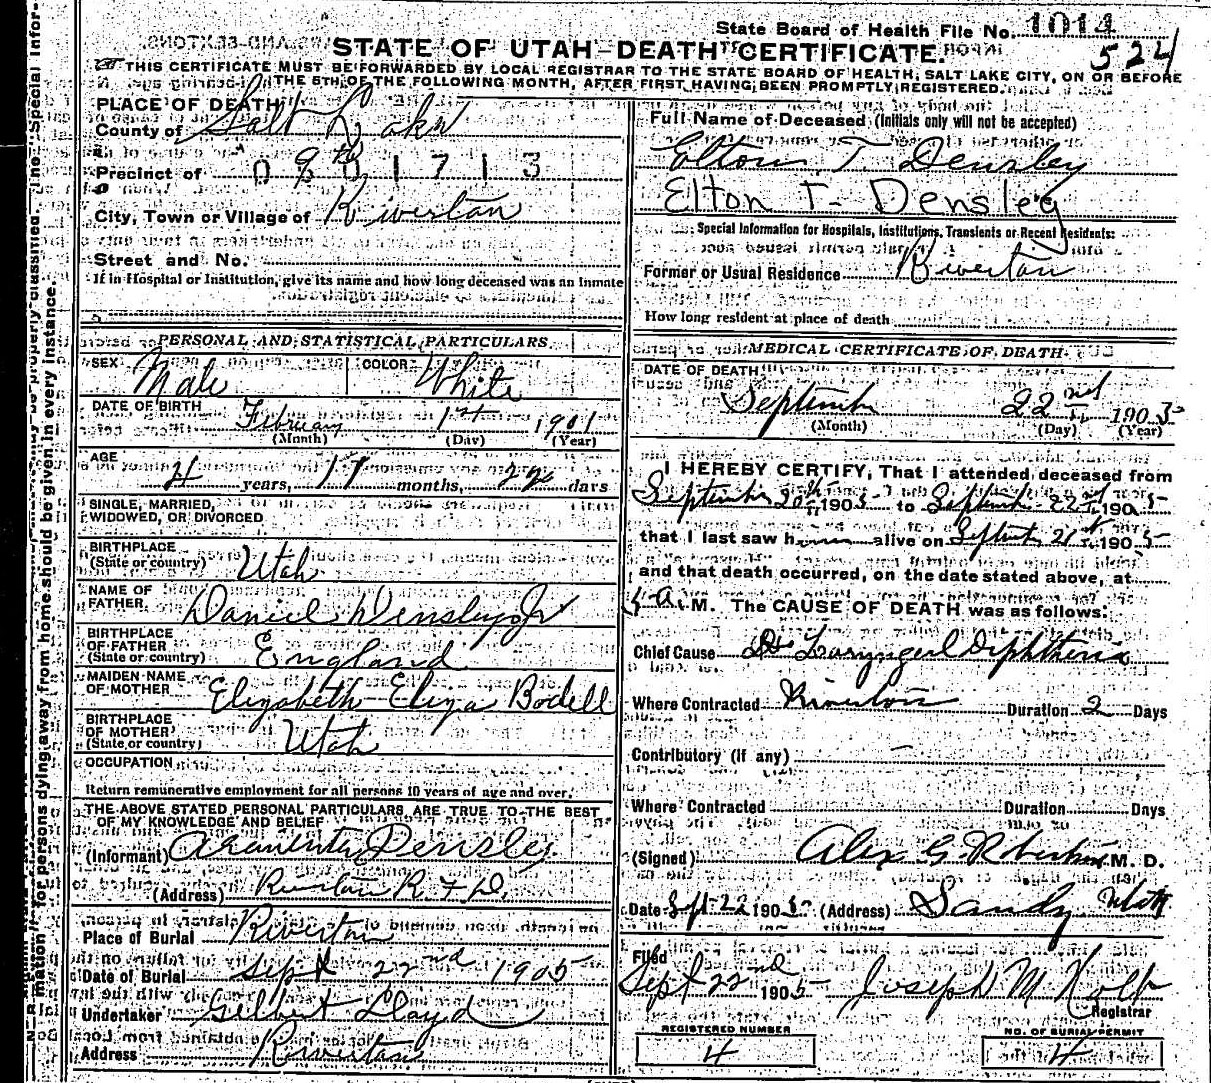 State Board of Health File No. 1014
524
STATE OF UTAH—DEATH CERTIFICATE.
THIS CERTIFICATE MUST BE FORWARDED BY LOCAL REGISTRAR TO THE STATE BOARD OF HEALTH, SALT LAKE CITY, ON OR BEFORE
THE 5TH OF THE FOLLOWING MONTH, AFTER FIRST HAVING BEEN PROMPTLY REGISTERED.
PLACE OF DEATH
County of Salt Lake
Precinct of
0 8 0 1 7 1 3
City, Town or Village of Riverton
Street and No.
If in Hospital or Institution, give its name and how long deceased was an inmate
Full Name of Deceased (Initials only will not be accepted)
Elton T. Densley
Elton T. Densley
Special Information for Hospitals, Institutions, Transients or Recent Residents:
Former or Usual Residence Riverton
How long resident at place of death
PERSONAL AND STATISTICAL PARTICULARS
SEX Male COLOR White
DATE OF BIRTH February 1st 1901
(Month) (Day) (Year)
AGE 4 years, months, days
SINGLE, MARRIED,
WIDOWED, OR DIVORCED
BIRTHPLACE
(State or country) Utah
NAME OF
FATHER. Daniel Densley Jr
BIRTHPLACE
OF FATHER
(State or country) England
MAIDEN NAME
OF MOTHER Elizabeth Eliza Bodell
BIRTHPLACE
OF MOTHER
(State or country) Utah
OCCUPATION
Return remunerative employment for all persons 10 years of age and over.
THE ABOVE STATED PERSONAL PARTICULARS ARE TRUE TO THE BEST
OF MY KNOWLEDGE AND BELIEF
(Informant) Densley
(Address) Riverton R. F. D.
Place of Burial Riverton
Date of Burial Sept 22nd 1905
Undertaker Gilbert Lloyd
Address Riverton
MEDICAL CERTIFICATE OF DEATH
DATE OF DEATH
September 22nd 1905
(Month) (Day) (Year)
I HEREBY CERTIFY, That I attended deceased from
September 20th 1905 to September 22nd 1905
that I last saw him alive on September 21st 1905
and that death occurred, on the date stated above, at
5 A. M. The CAUSE OF DEATH was as follows:
Chief Cause Laryngeal Diphtheria
Where Contracted Riverton Duration 2 Days
Contributory (if any) —
Where Contracted Duration Days
(Signed) Alex G. Robertson M. D.
Date Sept 22 1905 (Address) Sandy Utah
Filed
Sept 22nd 1905 Joseph M Kolb
Registrar
REGISTERED NUMBER
4
NO. OF BURIAL PERMIT
4
mation for persons dying away from home should be given in every instance.